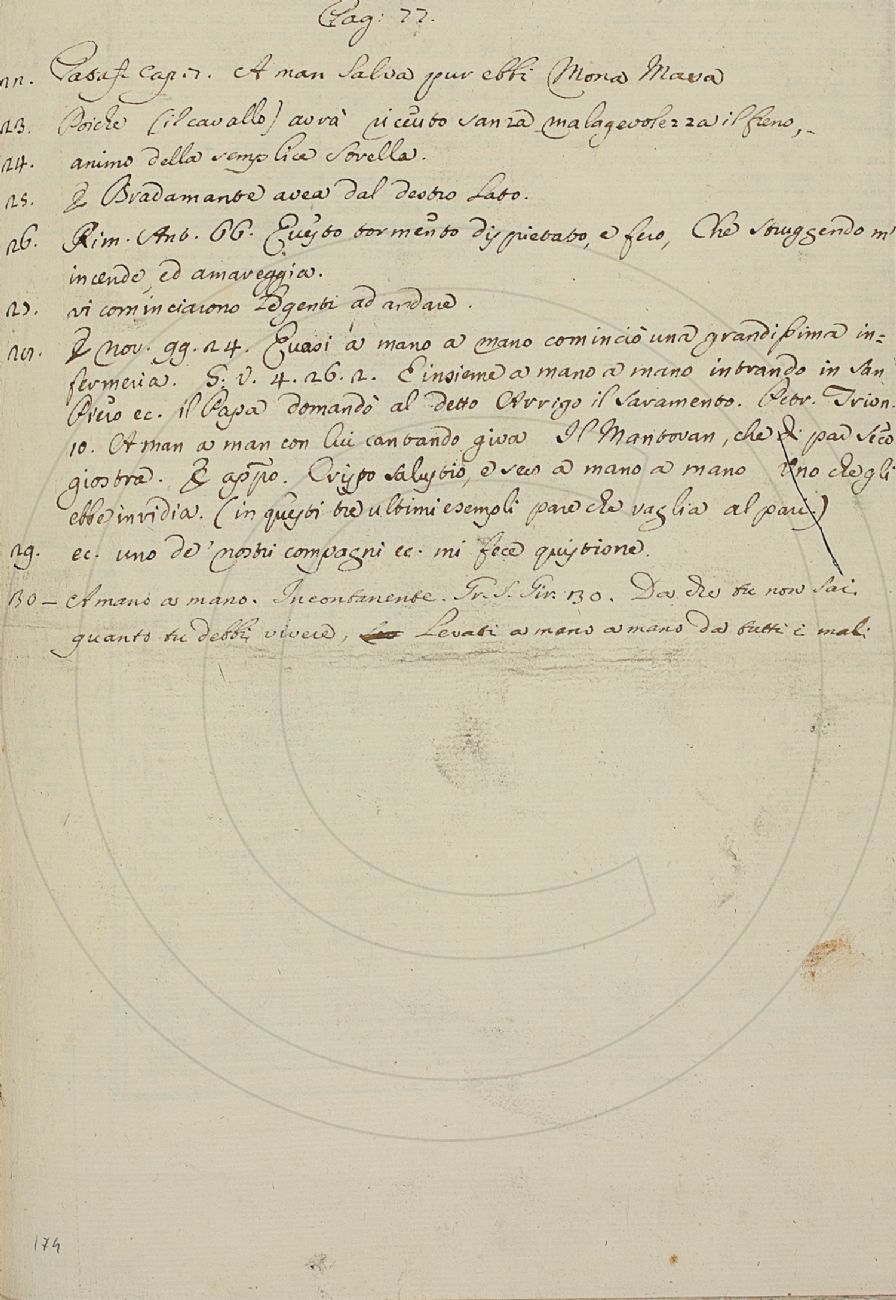 Pag: 77.
22. Pataff. Cap. 7. A man salva pur ebbi Mona Mava
23. Poiche (il cavallo) avrà riceuto sanza malagevolezza il freno,
24. animo della semplice sorella.
25. E Bradamante avea dal destro lato.
26. Rim. Ant. 66. Questo tormento dispietato, e fero, Che struggendo m'
incende, ed amareggia.
27. vi cominciarono le genti ad andare.
28. E nov. 99. 24. Quasi a mano a mano cominciò una grandissima in=
fermeria. G. V. 4. 26. 2. E insieme a mano a mano intrando in San
Piero ec. il Papa domandò al detto Arrigo il Saramento. Petr. Trion.
10. A man a man con lui cantando giva Il Mantovan, che di par seco
giostra. E appo. Crispo Salustio, e seco a mano a mano Uno che gli
ebbe invidia. (in questi tre ultimi esempli pare che vaglia al pari.)
29. ec. uno de' nostri compagni ec. mi fece quistione.
30 – A mano a mano. Incontanente. Tr. S. Gir. 30. Da che tu non sai
quanto tu debbi vivere, Levati a mano a mano da tutti i mali
174